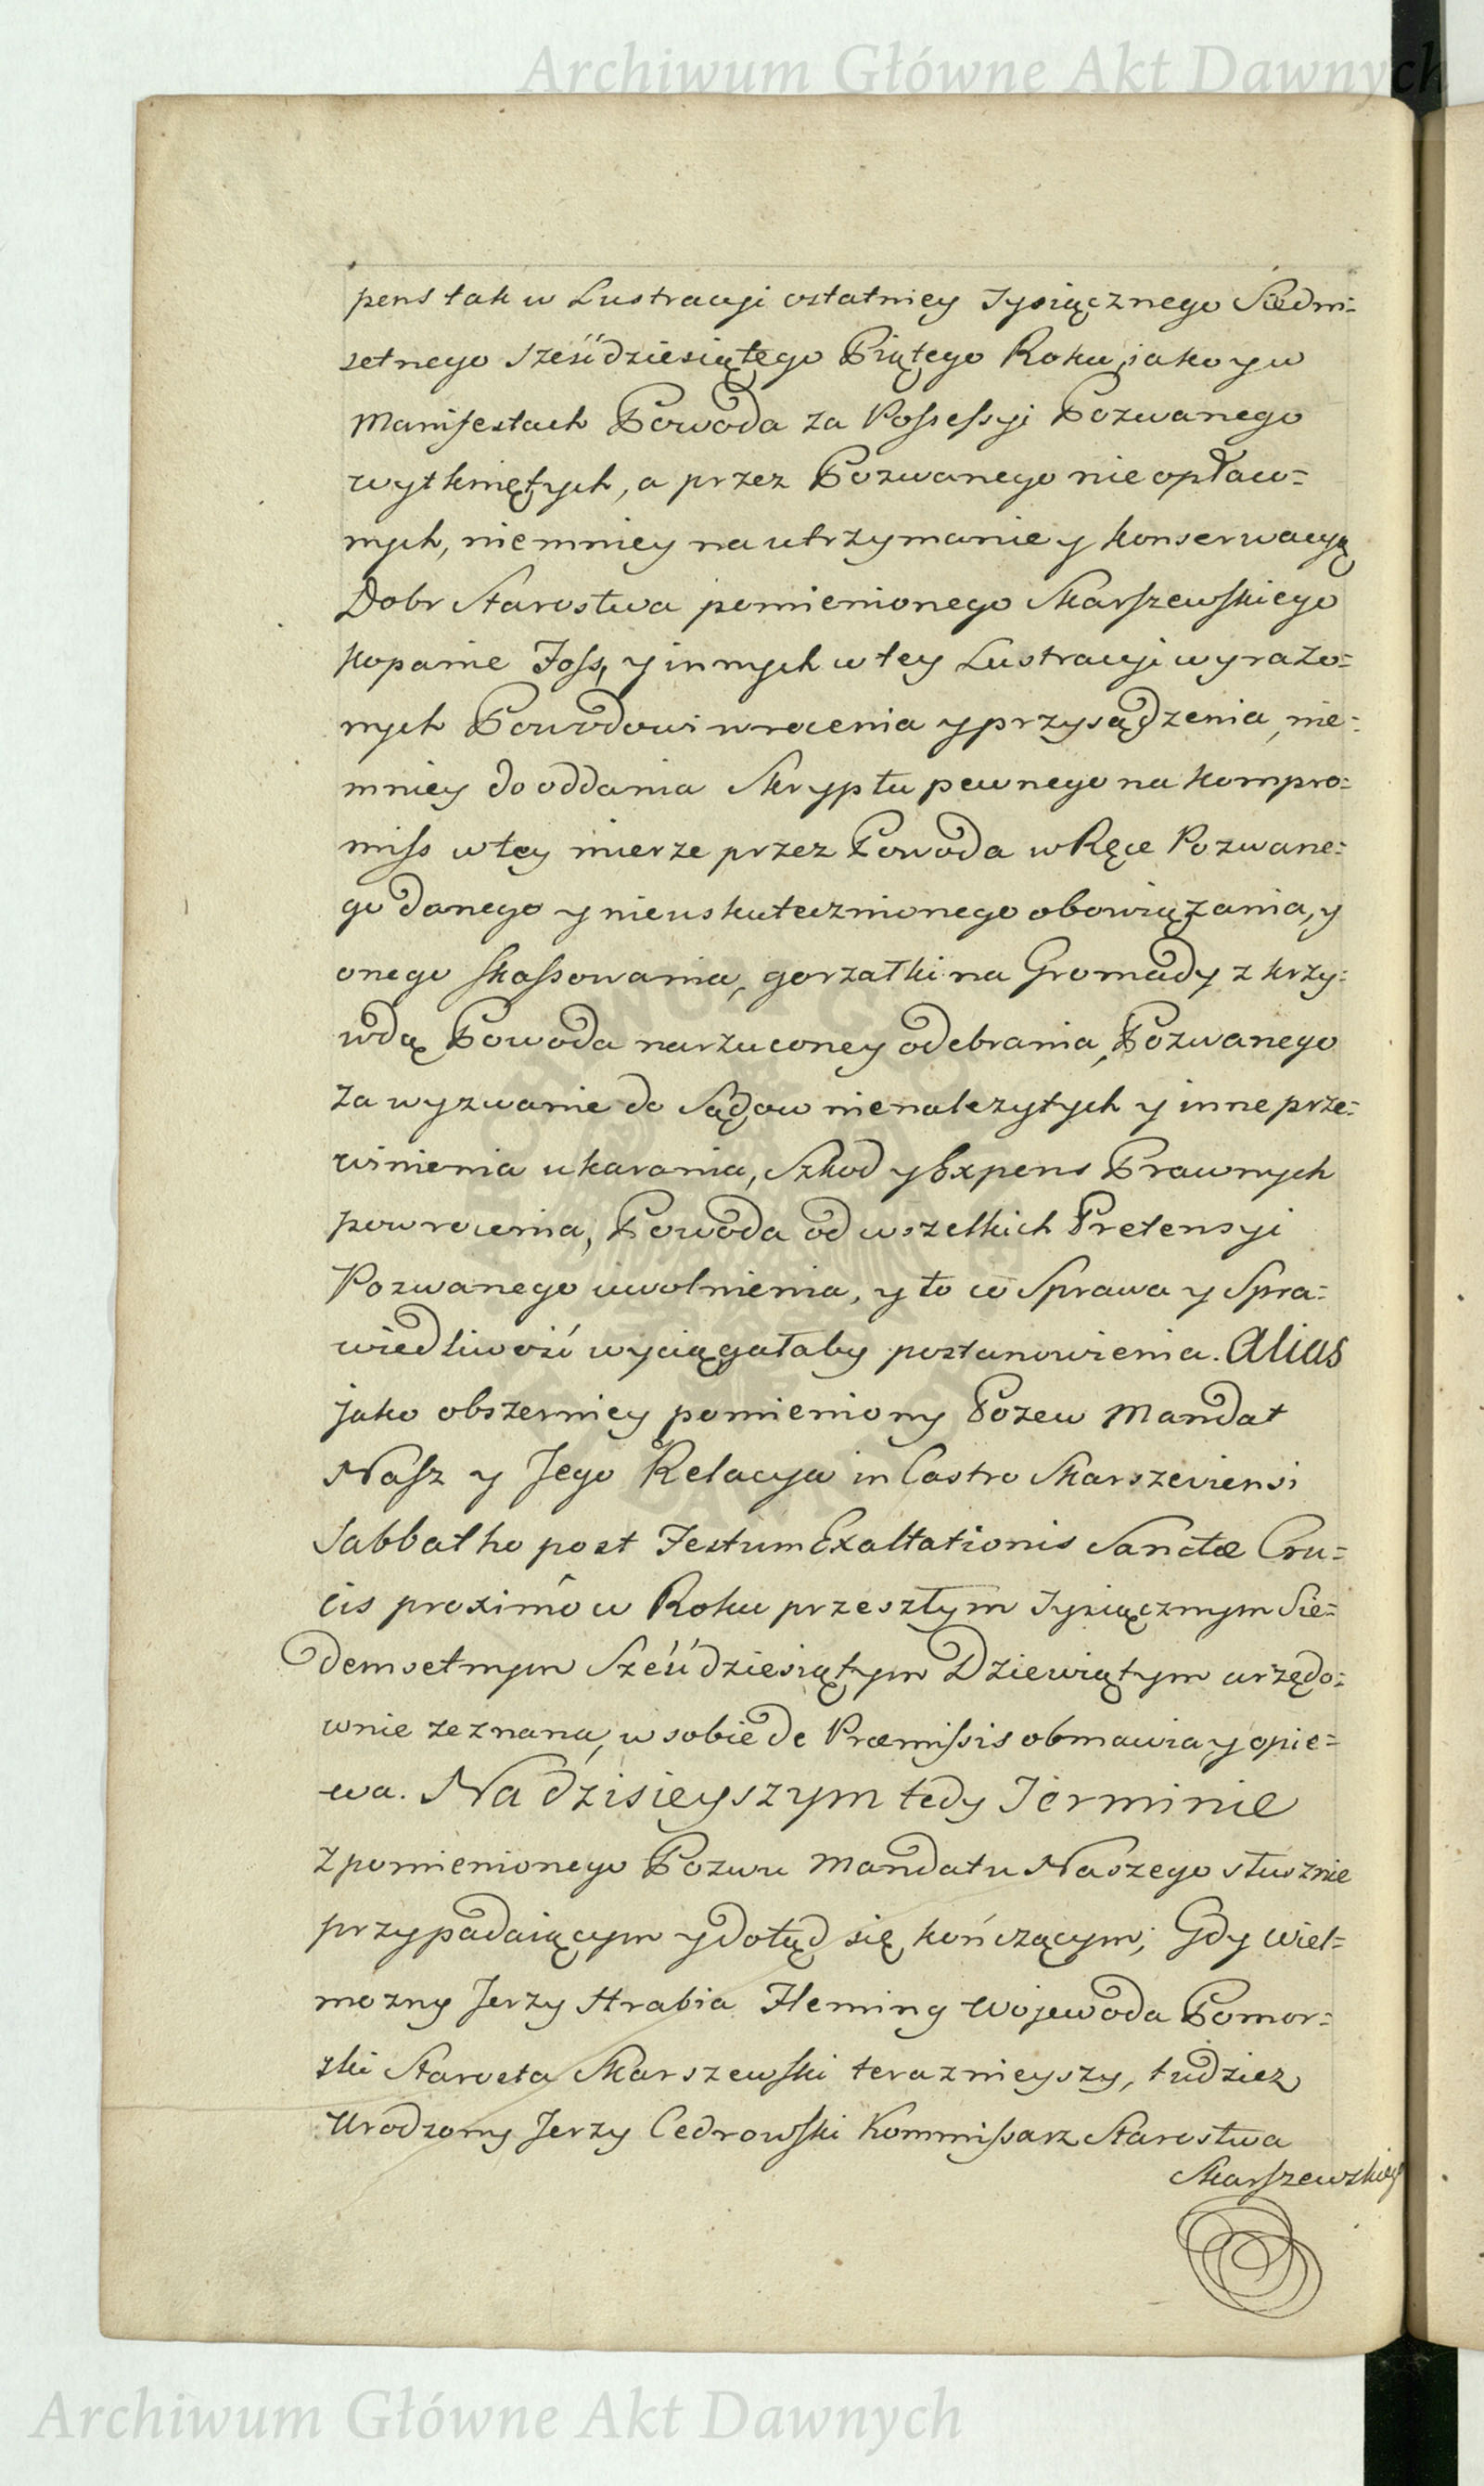 Archiwum Główne Akt Dawnych
pens tak w Lustracyi ostatniey Tysiącznego Siedm=
setnego Sześćdziesiątego Piątego Roku, iako y w
Manifestach Powoda za Possessyi Pozwanego
wytkniętych, a przez Pozwanego nie opław=
nych, niemniey na utrzymanie y konserwacyą
Dobr Starostwa pomienionego Skarszewskiego
kopanie Foss, y innych w tey Lustracyi wyrażo=
nych Powodowi wrocenia y przysądzenia, nie=
mniey do oddania Skryptu pewnego na kompro=
miss w tey mierze przez Powoda w Ręce Pozwane=
go danego y nieuskutecznionego obowiązania, y
onego skassowania, gorzałki na Gromady z krzy=
wdą Powoda narzuconey odebrania, Pozwanego
za wyzwanie do Sądow nienalezytych y inne prze=
winienia ukarania, Szkod y Expens Prawnych
powrocenia, Powoda od wszelkich Pretensyi
Pozwanego uwolnienia, y to co Sprawa y Spra=
wiedliwość wyciągałaby postanowienia. Alias
jako obszerniey pomieniony Pozew Mandat
Nasz y Jego Relacya in Castro Skarszeviensi
Sabbatho post Festum Exaltationis Sanctæ Cru=
cis proximô w Roku przeszłym Tysiącznym Sie=
demsetnym Sześćdziesiątym Dziewiątym urzędo=
wnie zeznana, w sobie de Præmissis obmawia y opie=
wa. Na dzisieyszym tedy Terminie
z pomienionego Pozwu Mandatu Naszego słusznie
przypadaiącym y dotąd się kończącym; Gdy Wiel=
mozny Jerzy Hrabia Fleming Wojewoda Pomor=
ski Starosta Skarszewski teraznieyszy, tudziez
Urodzony Jerzy Cedrowski Kommissarz Starostwa
Skarszewskieg
Archiwum Główne Akt Dawnych